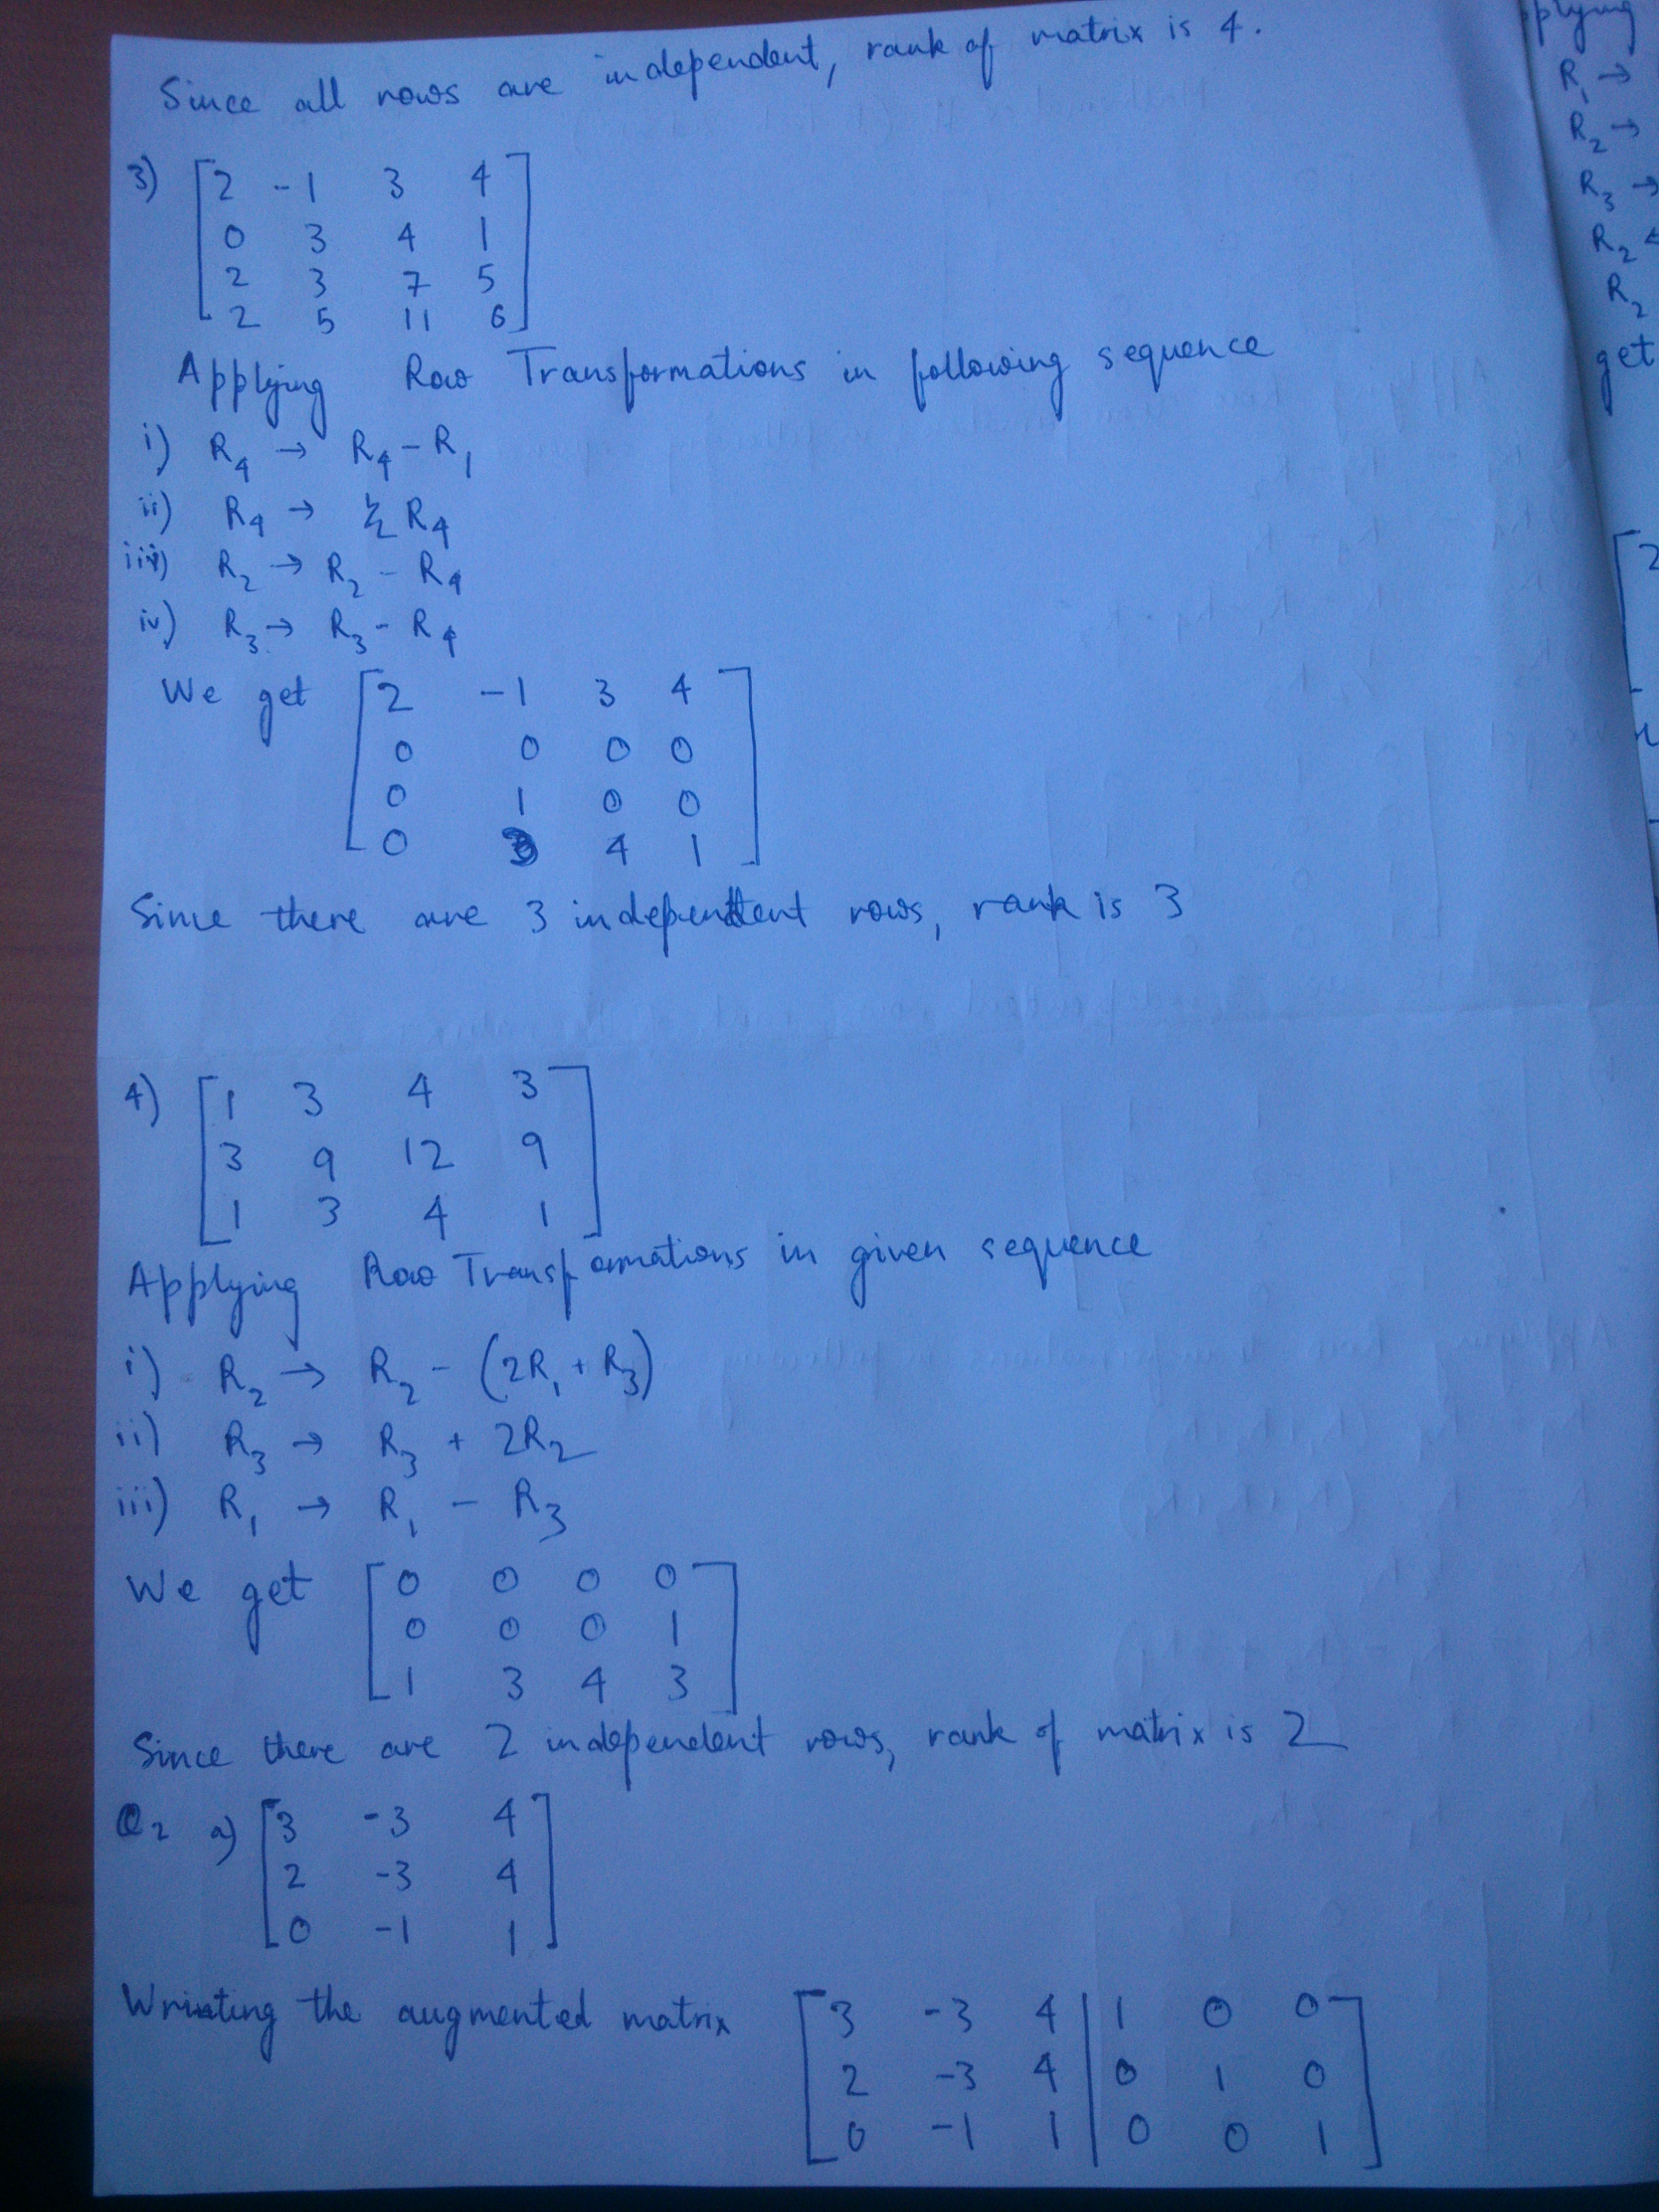 Since all rows are independent, rank of matrix is 4.
3) [2 -1 3 4
0 3 4 1
2 3 7 5
2 5 11 6]
Applying Row Transformations in following sequence
i) R4 → R4 - R1
ii) R4 → 1/2 R4
iii) R2 → R2 - R4
iv) R3 → R3 - R4
We get [2 -1 3 4
0 0 0 0
0 1 0 0
0 3 4 1]
Since there are 3 independent rows, rank is 3
4) [1 3 4 3
3 9 12 9
1 3 4 1]
Applying Row Transformations in given sequence
i) R2 → R2 - (2R1 + R3)
ii) R3 → R3 + 2R2
iii) R1 → R1 - R3
We get [0 0 0 0
0 0 0 1
1 3 4 3]
Since there are 2 independent rows, rank of matrix is 2
Q2 a) [3 -3 4
2 -3 4
0 -1 1]
Writing the augmented matrix [3 -3 4 | 1 0 0
2 -3 4 | 0 1 0
0 -1 1 | 0 0 1]
R1 →
R2 →
R3 →
R2
R2
get
[2